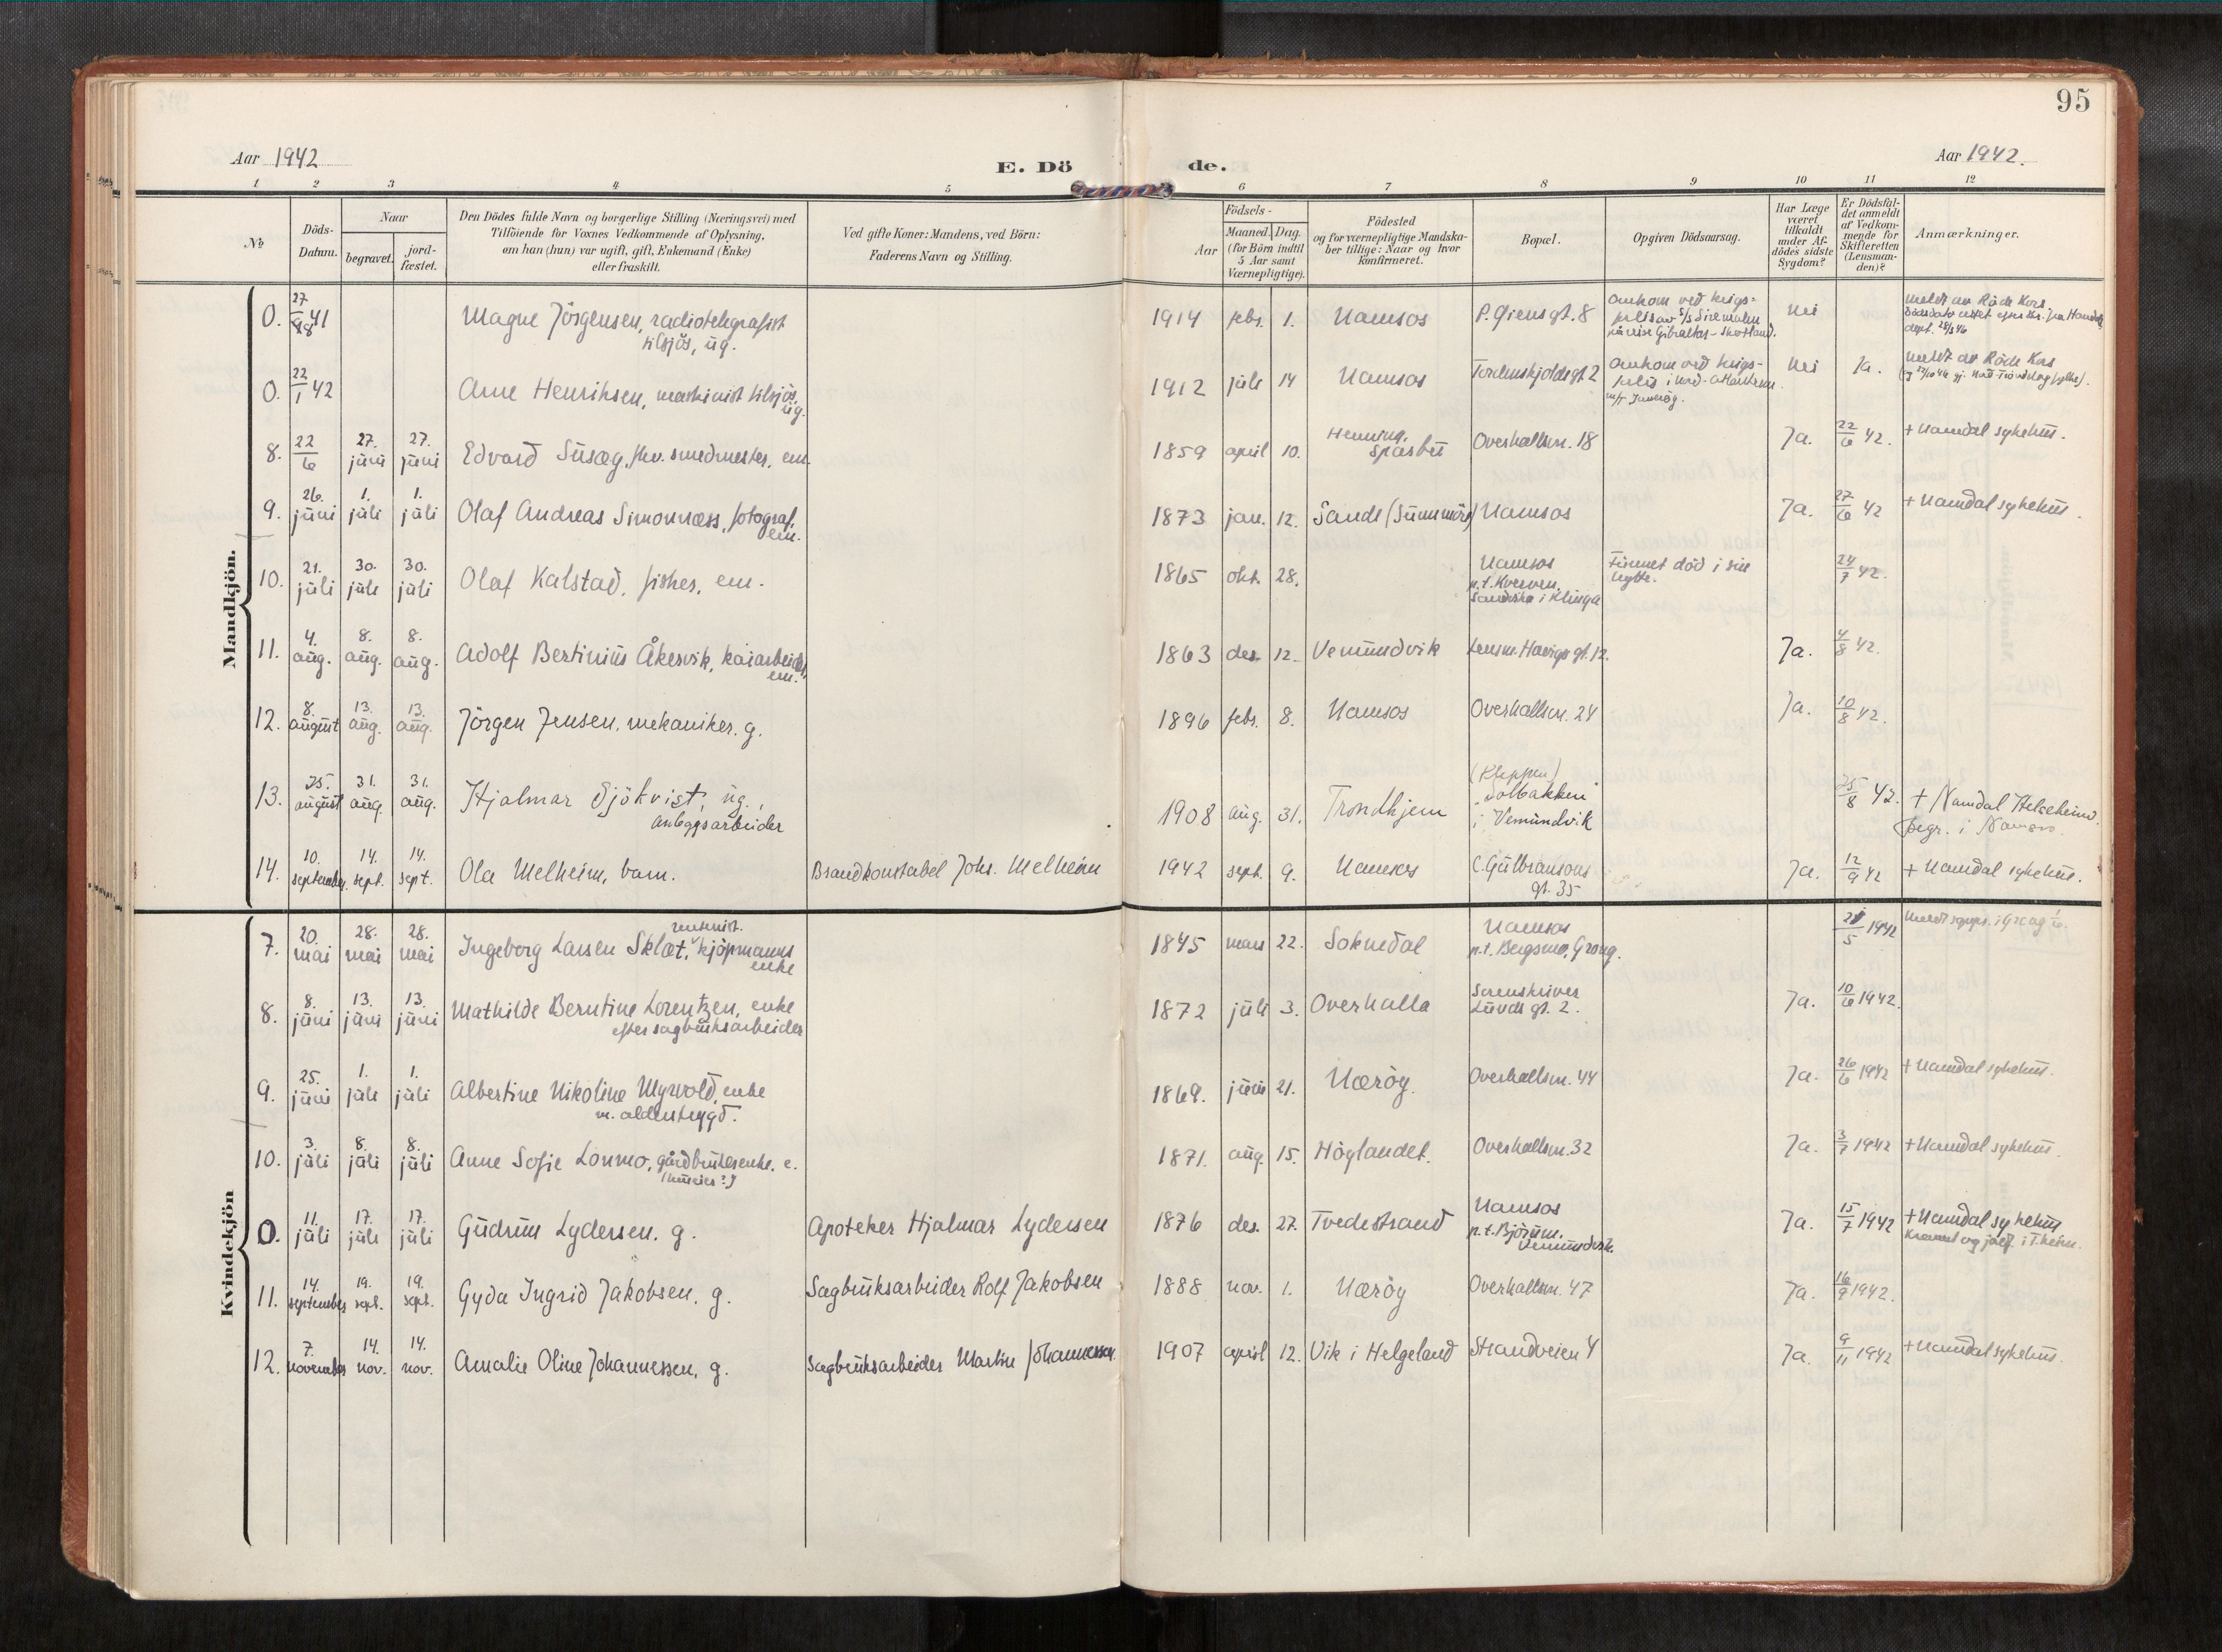 95
Aar 1942
E. Dö
de.
Aar 1942.
1 2 3 4 5 6 7 8 9 10 11 12
№
Döds-
Datum.
Naar
begravet.
jord-
fæstet.
Den Dödes fulde Navn og borgerlige Stilling (Næringsvei) med
Tilföiende for Voxnes Vedkommende af Oplysning,
om han (hun) var ugift, gift, Enkemand (Enke)
eller fraskilt.
Ved gifte Koner: Mandens, ved Börn:
Faderens Navn og Stilling.
Födsels-
Aar
Maaned. Dag.
(for Börn indtil
5 Aar samt
Værnepligtige).
Födested
og for værnepligtige Mandska-
ber tillige: Naar og hvor
konfirmeret.
Bopæl.
Opgiven Dödsaarsag.
Har Læge
været
tilkaldt
under Af-
dödes sidste
Sygdom?
Er Dödsfal-
det anmeldt
af Vedkom-
mende for
Skifteretten
(Lensman-
den)?
Anmærkninger.
Mandkjön.
0. 27 41 Magne Jörgensen, radiotelegrafist
tilsjös, ug.
1914 febr. 1. Namsos P. Giensgt. 8
Omkom ved krigs-
forlis av S/S Siremalm
på reise Gibraltar - Skotland.
Nei
Meldt av Röde Kors.
0. 22/1 42 Arne Henriksen, maskinist tilsjös,
ug.
1912 juli 14 Namsos Tordenskjoldsgt 2
Omkom ved krigs-
forlis i Nord-Atlanteren
Nei Ja.
Meldt av Röde Kors
8. 22/6 27. juni 27. juni Edvard Susæg, fhv. smedmester, em.
1859 april 10. Henning, Sparbu Overhallsvn. 18 Ja. 22/6 42. + Namdal sykehus.
9. 26. juni 1. juli 1. juli Olaf Andreas Simonnæss, fotograf,
em.
1873 jan. 12. Sande (Sunnmöre) Namsos Ja. 27/6 42 + Namdal sykehus.
10. 21. juli 30. juli 30. juli Olaf Kalstad, fisker, em.
1865 okt. 28. Namsos
p.t. Kverven,
Sandvika i Klinga
Funnet död i sin
hytte.
24/7 42.
11. 4. aug. 8. aug. 8. aug. Adolf Bertinius Åkervik, kaiarbeider,
em.
1863 des. 12. Vemundvik Lensm. Havigs gt. 12. Ja. 4/8 42.
12. 8. august 13. aug. 13. aug. Jörgen Jensen, mekaniker. g.
1896 febr. 8. Namsos Overhallsvn. 24 Ja. 10/8 42.
13. 25. august 31. aug. 31. aug. Hjalmar Sjökvist, ug.,
anleggsarbeider
1908 aug. 31. Trondhjem (Kleppen)
"Solbakken"
i Vemundvik
25/8 42. + Namdal Helseheim.
begr. i Namsos.
14. 10. september 14. sept. 14. sept. Ola Melheim, barn. Brandkonstabel Johs. Melheim
1942 sept. 9. Namsos C. Gulbransons
gt. 35
Ja. 12/9 42 + Namdal sykehus.
Kvindekjön
7. 20. mai 28. mai 28. mai Ingeborg Larsen Sklæt, rentenist. kjöpmanns
enke
1845 mars 22. Soknedal Namsos
p.t. Bergsmo, Grong.
21/5 1942
8. 8. juni 13. juni 13. juni Mathilde Berntine Lorentzen, enke
efter sagbruksarbeider
1872 juli 3. Overhalla Sorenskriver
Lunds gt. 2.
Ja. 10/6 1942.
9. 25. juni 1. juli 1. juli Albertine Nikoline Myrvold, enke
m. alderstrygd.
1869. juni 21. Nærøy. Overhallsvn. 44 Ja. 26/6 1942 + Namdal sykehus.
10. 3. juli 8. juli 8. juli Anne Sofie Lonmo, gårdbrukerenke. e.
1871. aug. 15. Höylandet. Overhallsvn. 32 Ja. 3/7 1942 + Namdal sykehus.
0. 11. juli 17. juli 17. juli Gudrun Lydersen. g. Apoteker Hjalmar Lydersen
1876 des. 27. Tvedestrand Namsos
p.t. Bjørum,
Vemundvik.
Ja. 15/7 1942 + Namdal sykehus
Kremert og jordf. i T.heim.
11. 14. september 19. sept. 19. sept. Gyda Ingrid Jakobsen. g. Sagbruksarbeider Rolf Jakobsen
1888 nov. 1. Nærøy Overhallsvn. 47 Ja. 16/9 1942.
12. 7. november 14. nov. 14. nov. Amalie Oline Johannessen, g. Sagbruksarbeider Martin Johannessen
1907 april 12. Vik i Helgeland Strandveien 4 Ja. 9/11 1942 + Namdal sykehus.